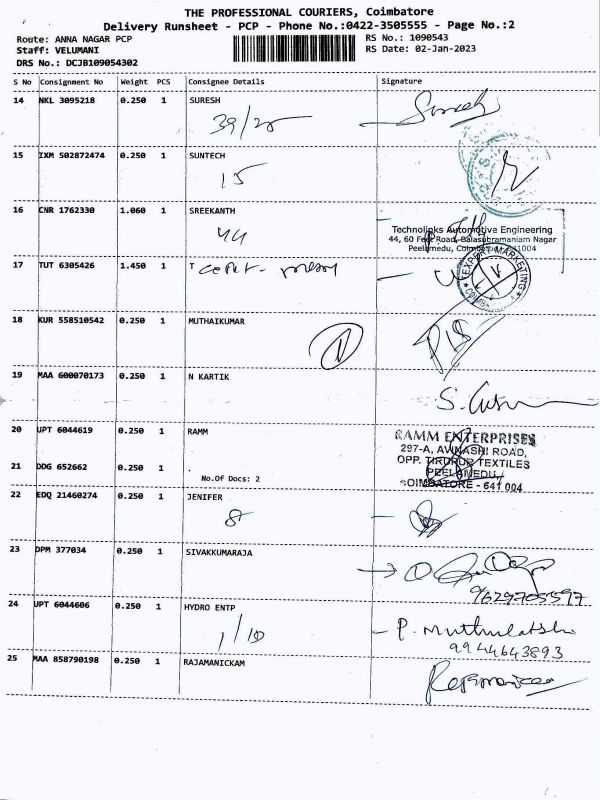 THE PROFESSIONAL COURIERS, Coimbatore
Delivery Runsheet - PCP - Phone No.:0422-3505555 - Page No.:2
Route: ANNA NAGAR PCP
RS No.: 1090543
Staff: VELUMANI
RS Date: 02-Jan-2023
DRS No.: DCJB109054302
S No Consignment No Weight PCS Consignee Details Signature
14 NKL 3095218 0.250 1 SURESH
39/25
Suresh
15 IXM 502872474 0.250 1 SUNTECH
15
16 CNR 1762330 1.060 1 SREEKANTH
44
Technolinks Automotive Engineering
44, 60 Feet Road, Balasubramaniam Nagar
Peelamedu, Coimbatore - 641004
17 TUT 6305426 1.450 1 T
EXPERT MARKETING
18 KUR 558510542 0.250 1 MUTHAIKUMAR
19 MAA 600070173 0.250 1 N KARTIK
20 UPT 6044619 0.250 1 RAMM
RAMM ENTERPRISES
297-A, AVINASHI ROAD,
OPP. TIRUPUR TEXTILES
PEELAMEDU,
COIMBATORE - 641 004
21 DDG 652662 0.250 1 .
No.Of Docs: 2
22 EDQ 21460274 0.250 1 JENIFER
8
23 DPM 377034 0.250 1 SIVAKKUMARAJA
9629705597
24 UPT 6044606 0.250 1 HYDRO ENTP
1/10
P. Muthulakshmi
9944643893
25 MAA 858790198 0.250 1 RAJAMANICKAM